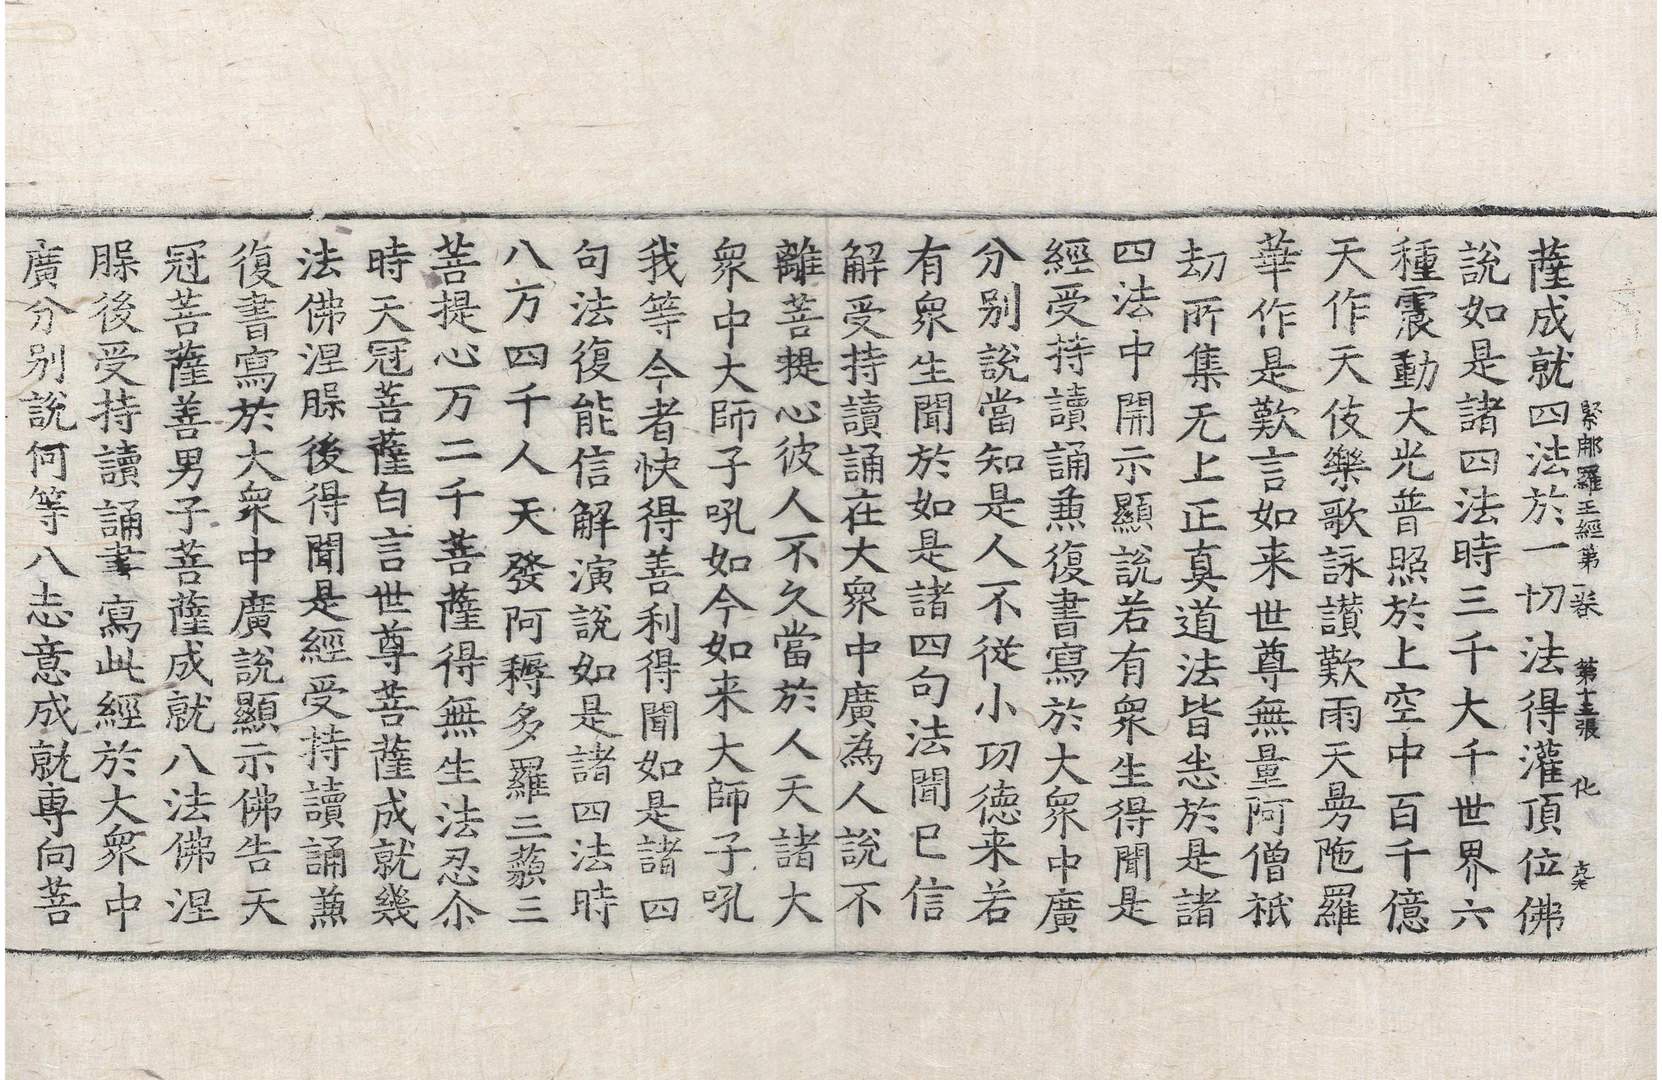 緊那羅王經第一卷 第十五張 化
薩成就四法於一切法得灌頂位佛
說如是諸四法時三千大千世界六
種震動大光普照於上空中百千億
天作天伎樂歌詠讃歎雨天曼陁羅
華作是歎言如来世尊無量阿僧祇
劫所集无上正真道法皆悉於是諸
四法中開示顯說若有衆生得聞是
經受持讀誦兼復書寫於大衆中廣
分別說當知是人不從小功德来若
有衆生聞於如是諸四句法聞已信
解受持讀誦在大衆中廣為人說不
離菩提心彼人不久當於人天諸大
衆中大師子吼如今如来大師子吼
我等今者快得善利得聞如是諸四
句法復能信解演說如是諸四法時
八方四千人天發阿耨多羅三藐三
菩提心万二千菩薩得無生法忍尒
時天冠菩薩白言世尊菩薩成就幾
法佛涅槃後得聞是經受持讀誦兼
復書寫於大衆中廣說顯示佛告天
冠菩薩善男子菩薩成就八法佛涅
槃後受持讀誦書寫此經於大衆中
廣分別說何等八志意成就専向菩